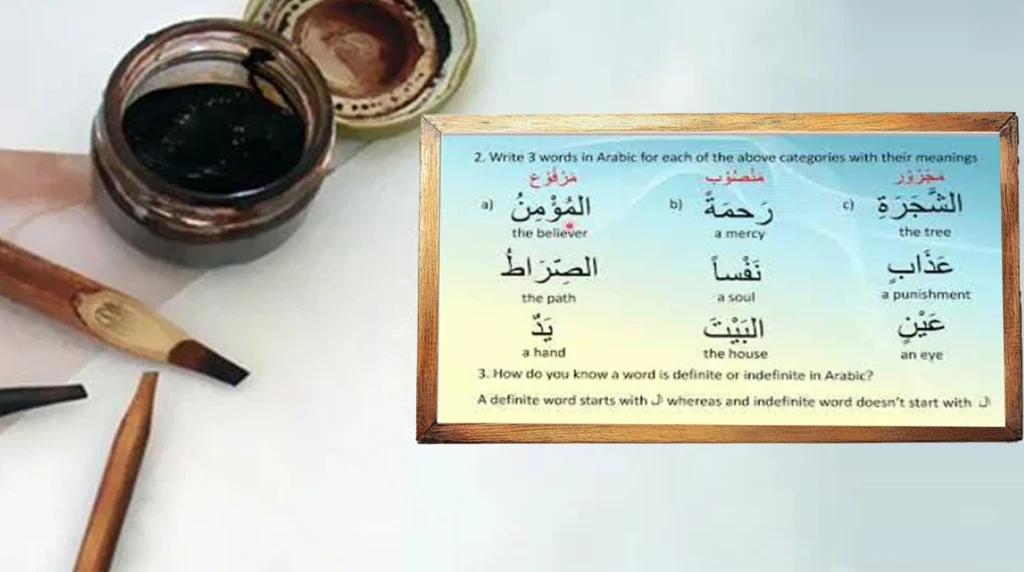 2. Write 3 words in Arabic for each of the above categories with their meanings
مَرْفُوْع مَنْصُوْب مَجْرُوْر
a) المُؤْمِنُ b) رَحمَةً c) الشَّجَرَةِ
the believer a mercy the tree
الصِّرَاطُ نَفْساً عَذَابٍ
the path a soul a punishment
يَدٌ البَيْتَ عَيْنٍ
a hand the house an eye
3. How do you know a word is definite or indefinite in Arabic?
A definite word starts with ال whereas and indefinite word doesn't start with ال